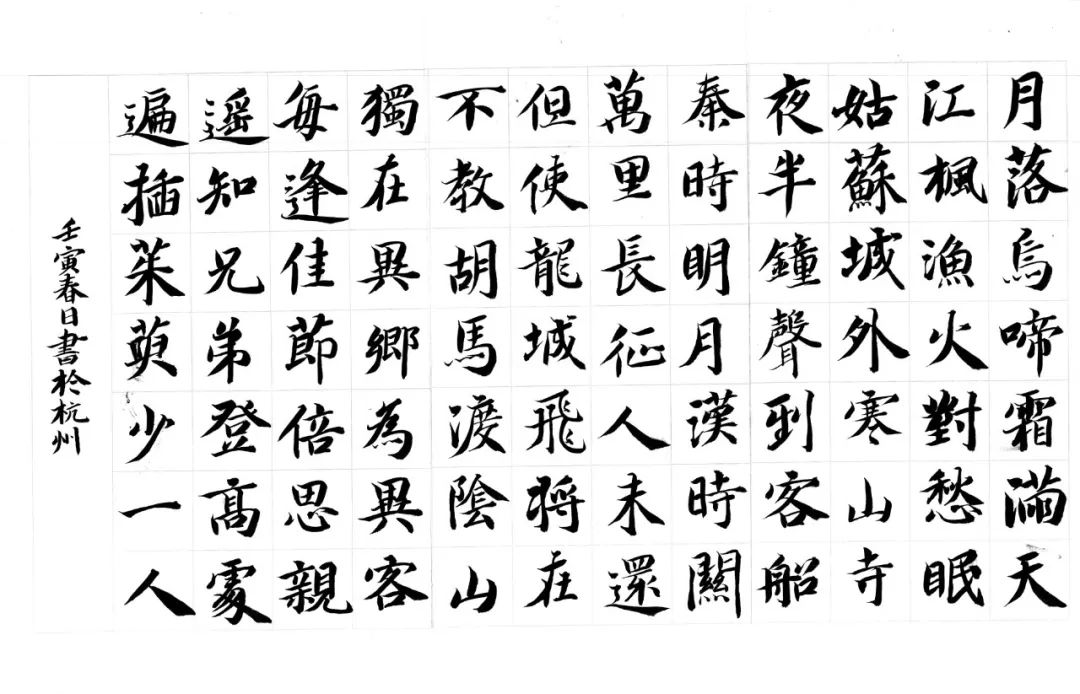 月落烏啼霜滿天
江楓漁火對愁眠
姑蘇城外寒山寺
夜半鐘聲到客船
秦時明月漢時關
萬里長征人未還
但使龍城飛將在
不教胡馬渡陰山
獨在異鄉為異客
每逢佳節倍思親
遥知兄弟登高處
遍插茱萸少一人
壬寅春日書於杭州